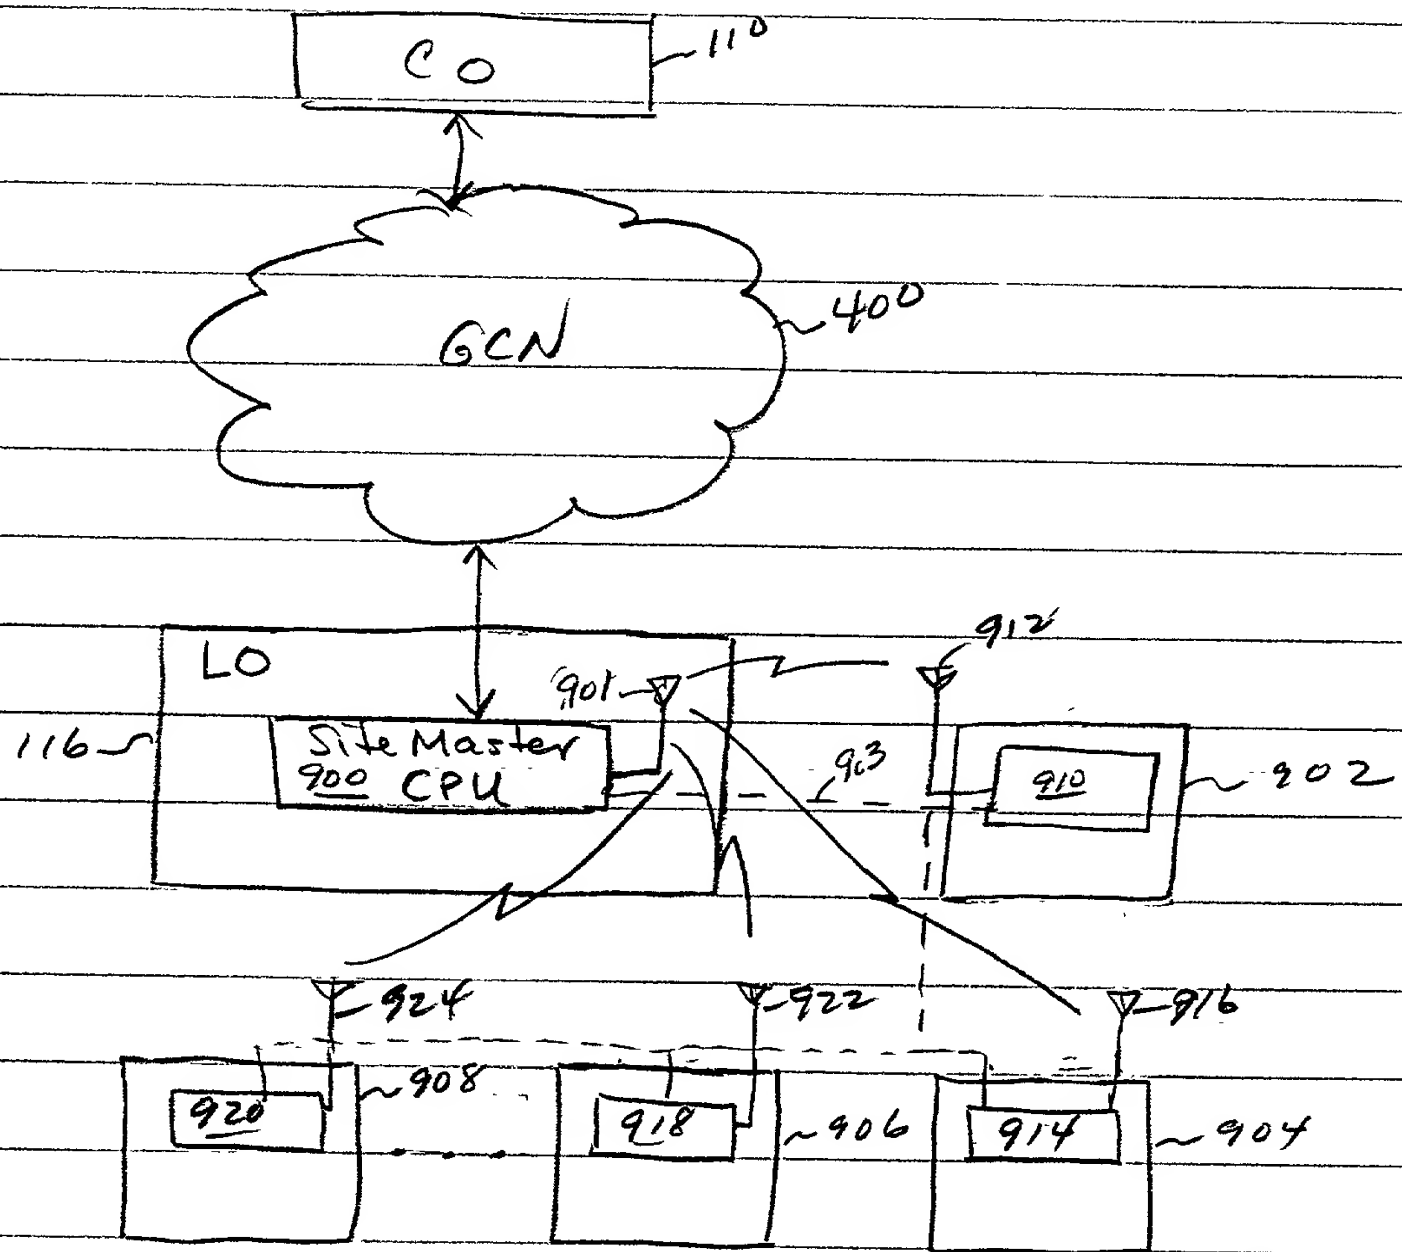 CO
110
GCN
400
LO
901
912
116
Site Master
900 CPU
903
910
902
924
922
916
908
920
918
906
914
904